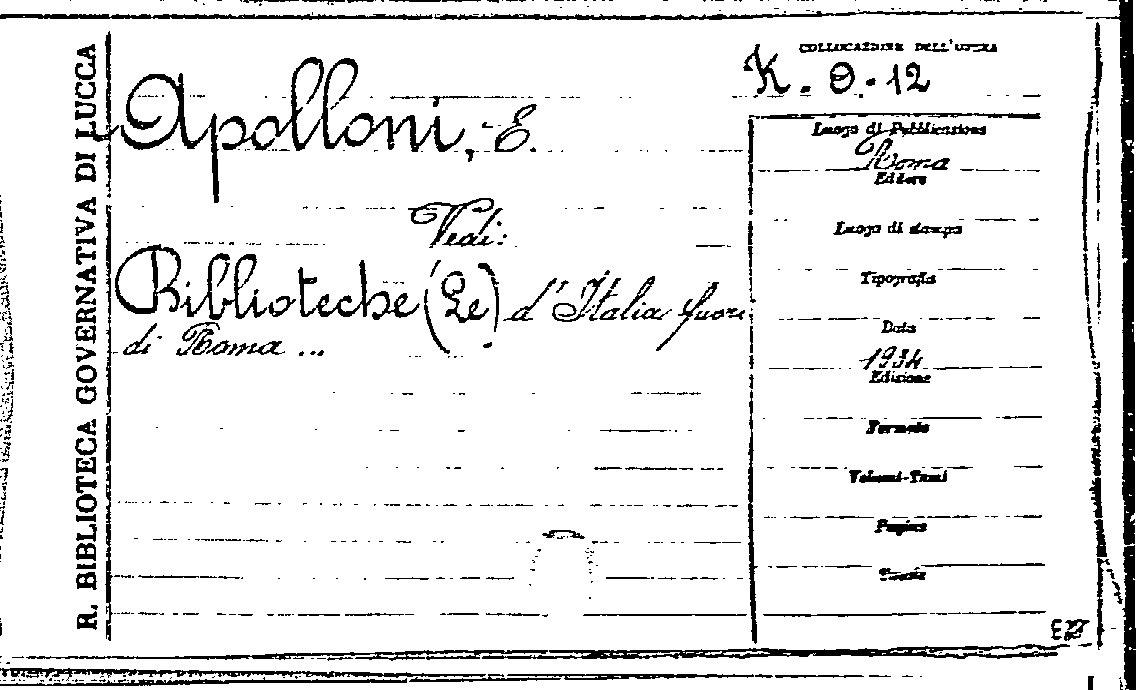 R. BIBLIOTECA GOVERNATIVA DI LUCCA
COLLOCAZIONE DELL'OPERA
K. O. - 12
Apolloni, E.
Vedi:
Biblioteche (Le) d'Italia fuori
di Roma ...
Luogo di Pubblicazione
Roma
Editore
Luogo di stampa
Tipografia
Data
1934
Edizione
Formato
Volumi-Tomi
Pagine